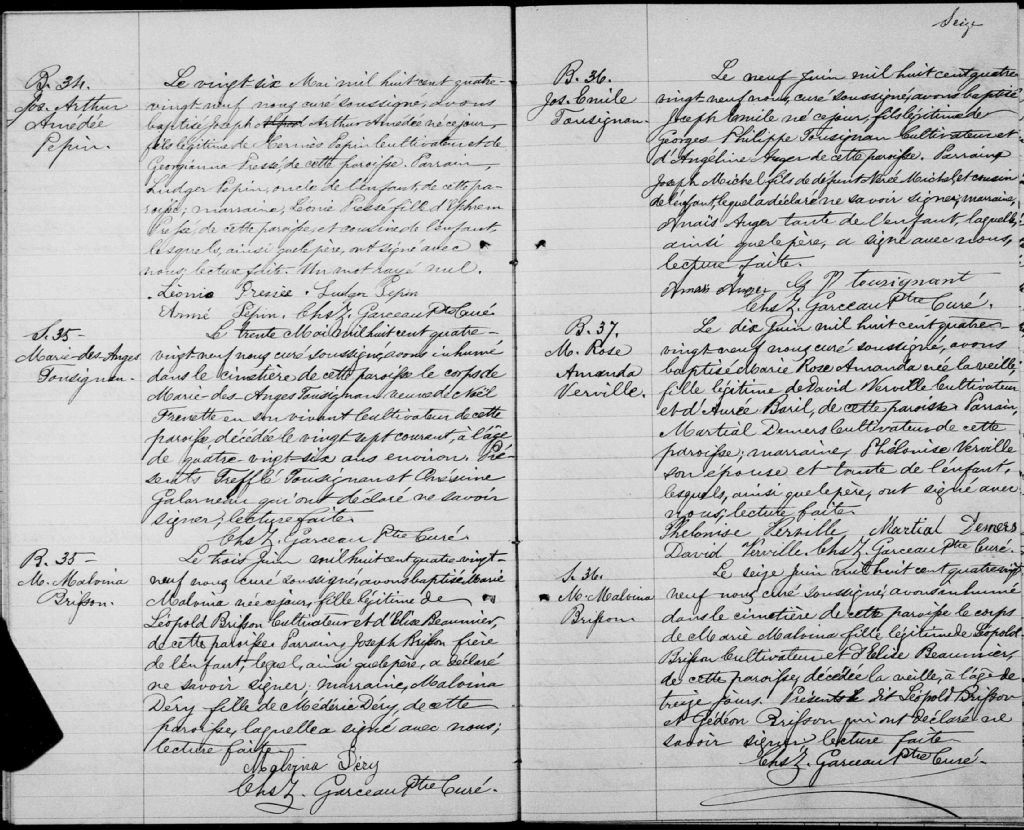 B. 34.
Jos. Arthur
Amédée
Pepin.
Le vingt six Mai mil huit cent quatre-
vingt neuf nous curé soussigné, avons
baptisé Joseph Arthur Amédée né ce jour,
fils légitime de Hermés Pepin Cultivateur et de
Georgianna Presse, de cette paroisse. Parrain,
Ludger Pepin, oncle de l'enfant, de cette pa-
roisse; marraine, Léonie Presse fille d'Ephrem
Presse, de cette paroisse, et cousine de l'enfant,
lesquels, ainsi que le père, ont signé avec
nous, lecture faite. Un mot rayé nul.
Léonie Presseé Ludger Pepin
Pepin. Chs Z. Garceau Ptre Curé
S. 35-
Marie-des-Anges
Tousignan.
Le trente Mai mil huit cent quatre-
vingt neuf nous curé soussigné, avons inhumé
dans le cimetière de cette paroisse le corps de
Marie-des Anges Tousignan veuve de Noël
Frenette en son vivant Cultivateur de cette
paroisse, décédée le vingt sept courant, à l'âge
de quatre-vingt-six ans environ. Pré-
sents Trefflé Tousignan et Onésime
Galarneau qui ont déclaré ne savoir
signer, lecture faite.
Chs Z. Garceau Ptre Curé.
B. 35-
M. Malvina
Brisson.
Le trois Juin mil huit cent quatre vingt-
neuf nous curé soussigné, avons baptisé Marie
Malvina née ce jour, fille légitime de
Léopold Brisson Cultivateur et d'Elise Beaumier,
de cette paroisse. Parrain, Joseph Brisson frère
de l'enfant, lequel, ainsi que le père, a déclaré
ne savoir signer; marraine, Malvina
Déry fille de Médéric Déry, de cette
paroisse, laquelle a signé avec nous,
lecture faite.
Malvina Déry
Chs Z. Garceau Ptre Curé.
Seize
B. 36.
Jos. Emile
Tousignan.
Le neuf Juin mil huit cent quatre
vingt neuf nous, curé soussigné, avons baptisé
Joseph Emile né ce jour, fils légitime de
Georges Philippe Tousignan Cultivateur et
d'Angéline Auger de cette paroisse. Parrain
Joseph Michel fils de défunt Nérée Michel, et cousin
de l'enfant, lequel a déclaré ne savoir signer; marraine,
Anaïs Auger tante de l'enfant, laquelle,
ainsi que le père, a signé avec nous,
lecture faite.
Anaïs Auger G P tousignant
Chs Z. Garceau Ptre Curé.
B. 37.
M. Rose
Amanda
Verville.
Le dix Juin mil huit cent quatre-
vingt neuf nous curé soussigné, avons
baptisé Marie Rose Amanda née la veille,
fille légitime de David Verville Cultivateur
et d'Aurée Baril, de cette paroisse. Parrain,
Martial Demers Cultivateur de cette
paroisse, marraine, Philonise Verville
son épouse et tante de l'enfant,
lesquels, ainsi que le père, ont signé avec
nous, lecture faite
Philonise Verville Martial Demers
David Verville. Chs Z. Garceau Ptre Curé.
S. 36.
M. Malvina
Brisson
Le seize Juin mil huit cent quatre vingt
neuf nous curé soussigné, avons inhumé
dans le cimetière de cette paroisse le corps
de Marie Malvina fille légitime de Léopold
Brisson Cultivateur et d'Elise Beaumier,
de cette paroisse, décédée la veille, à l'âge de
treize jours. Présents le dit Léopold Brisson
et Gédéon Brisson qui ont déclaré ne
savoir signer lecture faite
Chs Z. Garceau Ptre Curé.